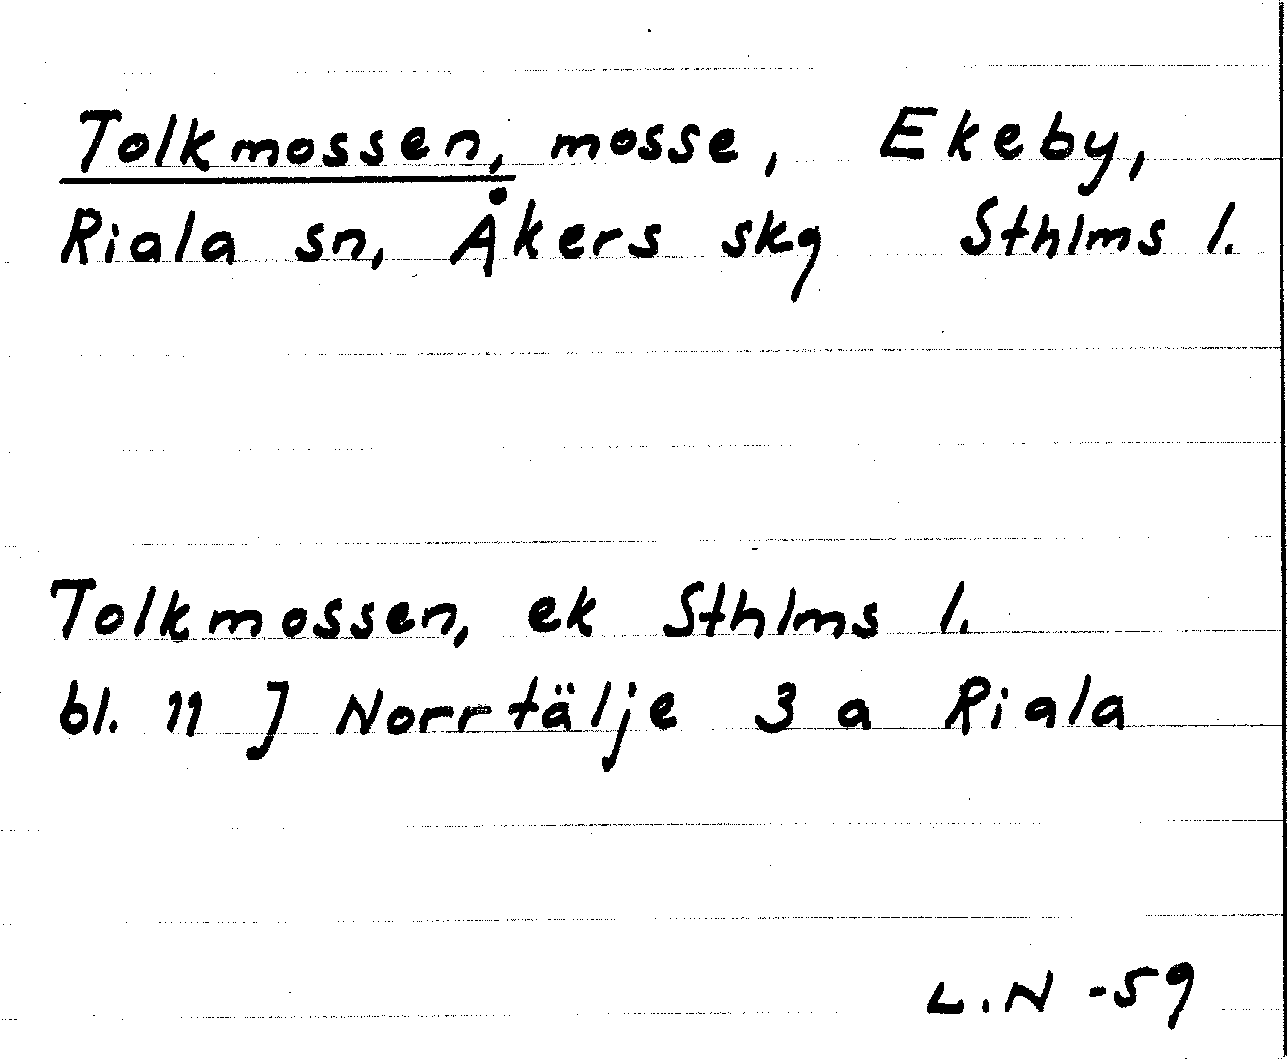 Tolkmossen, mosse, Ekeby,
Riala sn, Åkers skg Sthlms l.
Tolkmossen, ek Sthlms l.
bl. 11 J Norrtälje 3 a Riala
L.N -59